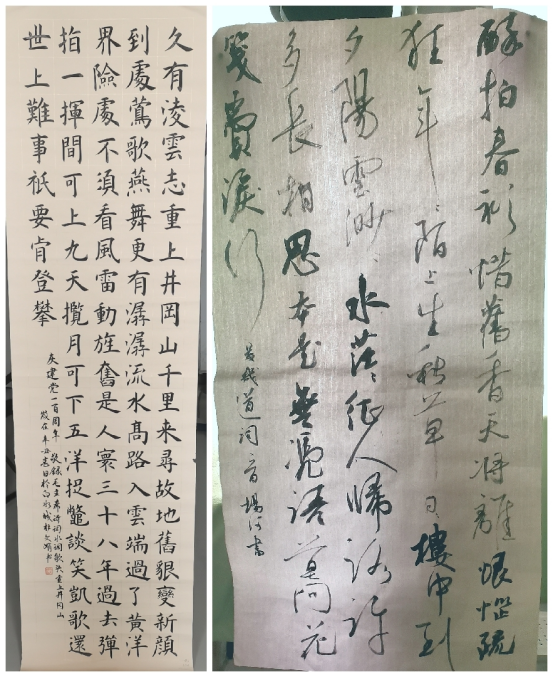 久有淩雲志重上井岡山千里来尋故地舊貌變新顔
到處莺歌燕舞更有潺潺流水髙路入雲端過了黄洋
界險處不須看風雷動旌奮是人寰三十八年過去彈
指一揮間可上九天攬月可下五洋捉鼈談笑凱歌還
世上難事衹要肯登攀
建党一百周年 敬録毛主席诗词水调歌头重上井冈山
歲在辛丑
醉拍春衫惜舊香天将離恨惱疏
狂年〻陌上生秋草日〻樓中到
夕陽雲渺〻水茫〻征人歸路許
多長相思本是無憑語莫向花
箋費淚行